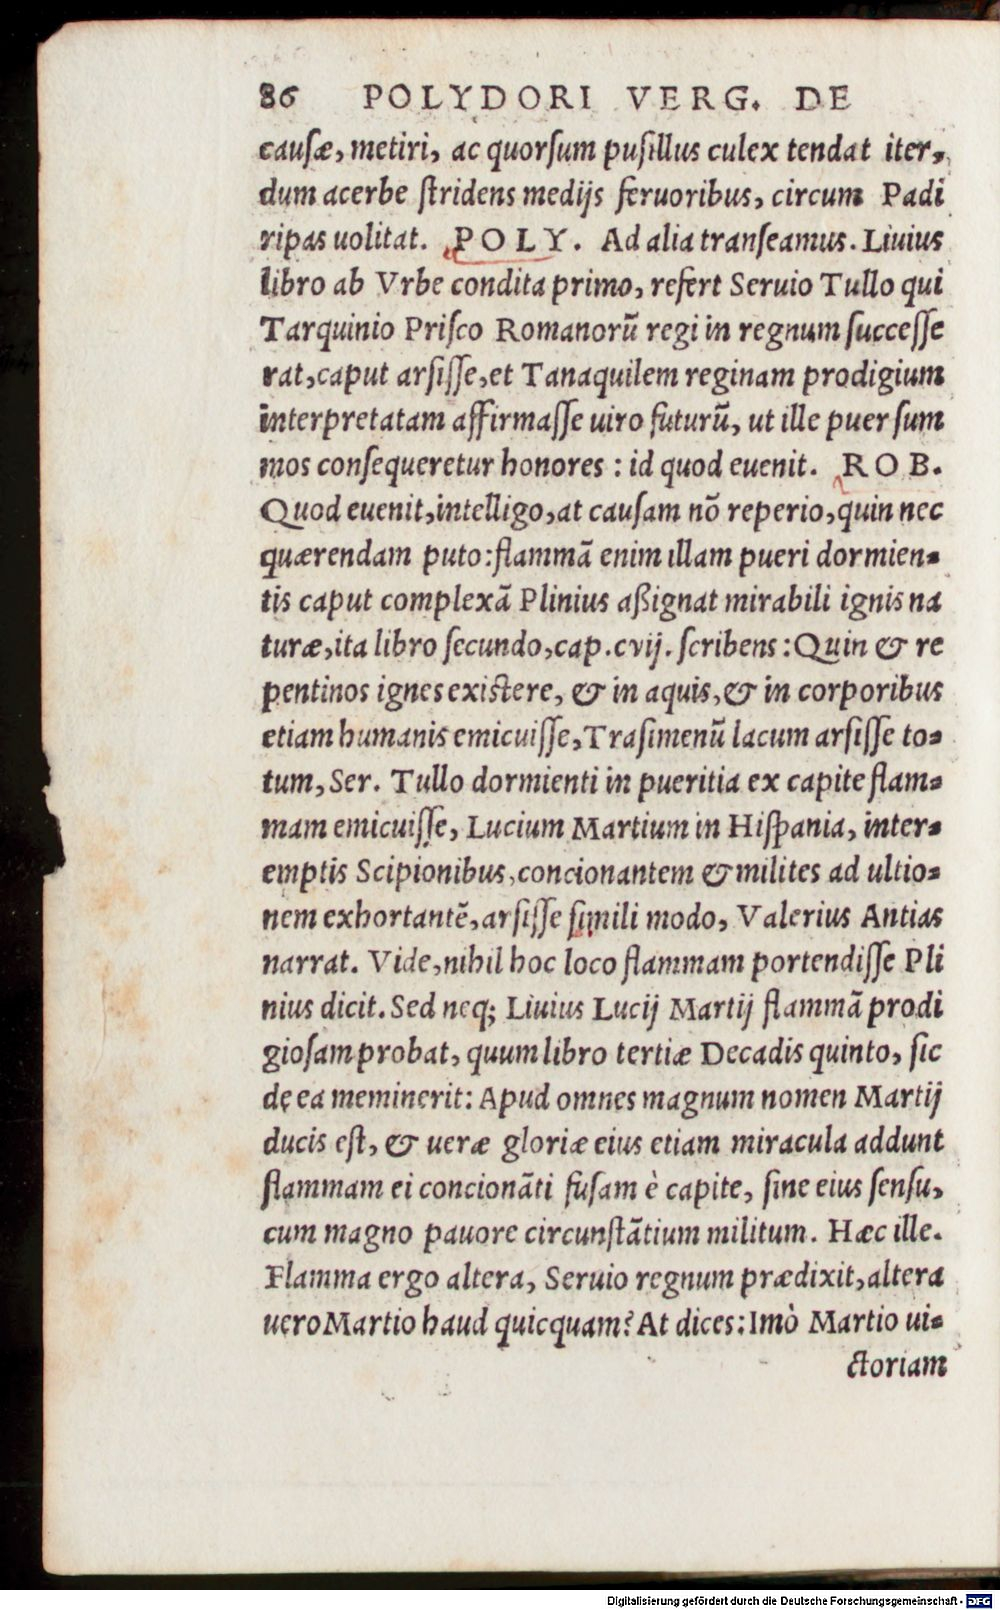 86 POLYDORI VERG. DE
cauſæ, metiri, ac quorſum puſillus culex tendat iter,
dum acerbe ſtridens medijs feruoribus, circum Padi
ripas uolitat. POLY. Ad alia tranſeamus. Liuius
libro ab Vrbe condita primo, refert Seruio Tullo qui
Tarquinio Priſco Romanorū regi in regnum ſucceſſe
rat, caput arſiſſe, et Tanaquilem reginam prodigium
interpretatam affirmaſſe uiro futurū, ut ille puer ſum
mos conſequeretur honores : id quod euenit. ROB.
Quod euenit, intelligo, at cauſam nō reperio, quin nec
quærendam puto: flammā enim illam pueri dormien-
tis caput complexā Plinius aßignat mirabili ignis na
turæ, ita libro ſecundo, cap. cvij. ſcribens: Quin & re
pentinos ignes exiſtere, & in aquis, & in corporibus
etiam humanis emicuiſſe, Traſimenū lacum arſiſſe to-
tum, Ser. Tullo dormienti in pueritia ex capite flam-
mam emicuiſſe, Lucium Martium in Hiſpania, inter-
emptis Scipionibus, concionantem & milites ad ultio-
nem exhortantē, arſiſſe ſimili modo, Valerius Antias
narrat. Vide, nihil hoc loco flammam portendiſſe Pli
nius dicit. Sed neq; Liuius Lucij Martij flammā prodi
gioſam probat, quum libro tertiæ Decadis quinto, ſic
de ea meminerit: Apud omnes magnum nomen Martij
ducis eſt, & ueræ gloriæ eius etiam miracula addunt
flammam ei concionāti fuſam è capite, ſine eius ſenſu,
cum magno pauore circunſtātium militum. Hæc ille.
Flamma ergo altera, Seruio regnum prædixit, altera
uero Martio haud quicquam? At dices: Imò Martio ui-
ctoriam
Digitalisierung gefördert durch die Deutsche Forschungsgemeinschaft - DFG